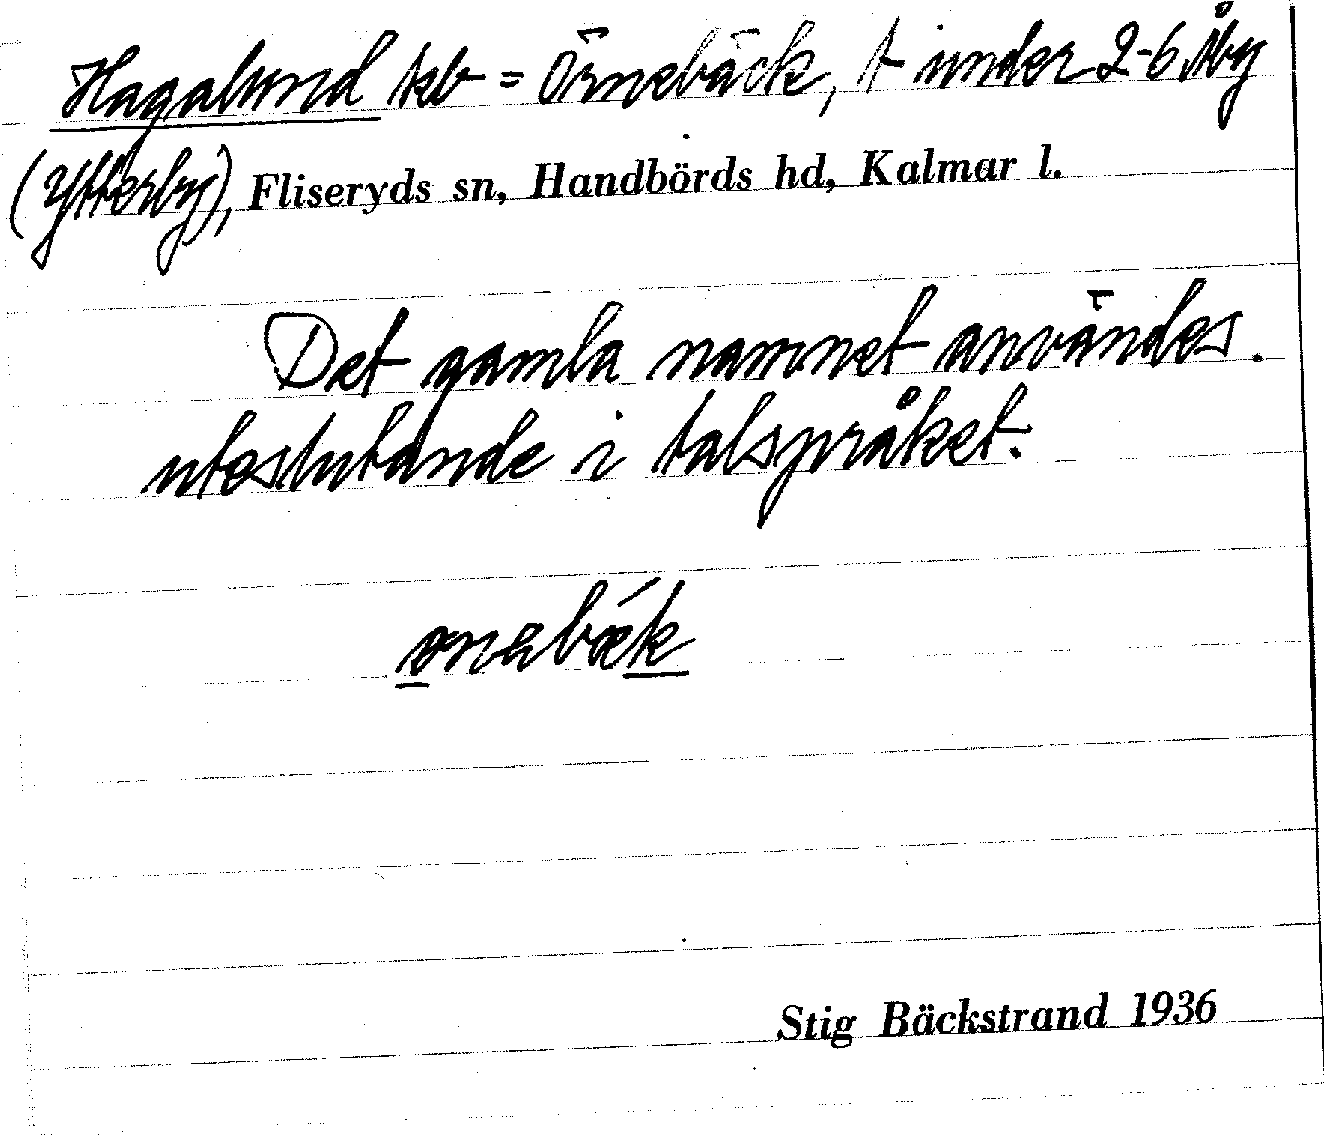 Hagalund tkb = Örnebäck, t under 2-6 Åby
(Ytterby), Fliseryds sn, Handbörds hd, Kalmar l.
Det gamla namnet användes
uteslutande i talspråket.
Stig Bäckstrand 1936